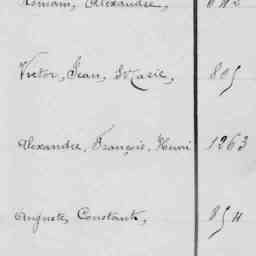 Romain, Alexandre,
Victor, Jean, Marie, 805
Alexandre, François, Henri 1263
Auguste, Constant, 854